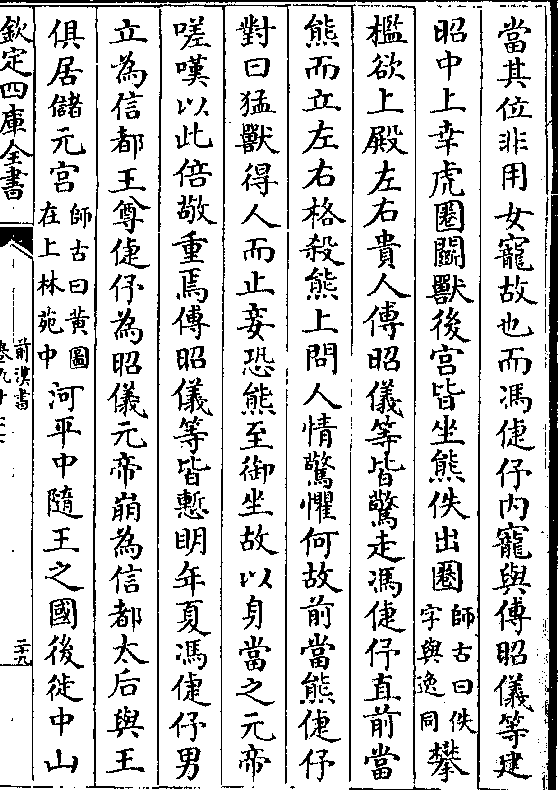 當其位非用女寵故也而馮倢伃內寵與傅昭儀等建
昭中上幸虎圈鬭獸後宮皆坐熊佚出圈師古曰佚字與逸同攀
檻欲上殿左右貴人傅昭儀等皆驚走馮倢伃直前當
熊而立左右格殺熊上問人情驚懼何故前當熊倢伃
對曰猛獸得人而止妾恐熊至御坐故以身當之元帝
嗟嘆以此倍敬重焉傅昭儀等皆慙明年夏馮倢伃男
立為信都王尊倢伃為昭儀元帝崩為信都太后與王
俱居儲元宮師古曰黃圖在上林苑中河平中隨王之國後徙中山
欽定四庫全書
前漢書
卷九十
二十九